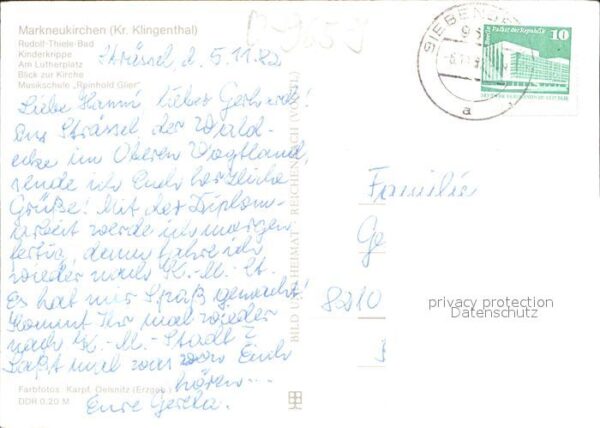 Markneukirchen (Kr. Klingenthal)
Rudolf-Thiele-Bad
Kinderkrippe
Am Lutherplatz
Blick zur Kirche
Musikschule „Reinhold Glier"
Strässel, d. 5.11.82
Liebe Hanni, lieber Gerhard!
Aus Strässel, der Wald-
ecke im Oberen Vogtland,
sende ich Euch herzliche
Grüße! Mit der Diplom-
arbeit werde ich morgen
fertig, dann fahre ich
wieder nach K.-M.-St.
Es hat mir Spaß gemacht!
Kommt Ihr mal wieder
nach K.-M.-Stadt?
Laßt mal von Euch
hören...
Eure Gerda.
Farbfotos: Karpf, Oelsnitz (Erzgeb.)
DDR 0,20 M
BILD UND HEIMAT REICHENBACH (VOGTL)
Palast der Republik
10
a
Familie
Ge
8210
privacy protection
Datenschutz